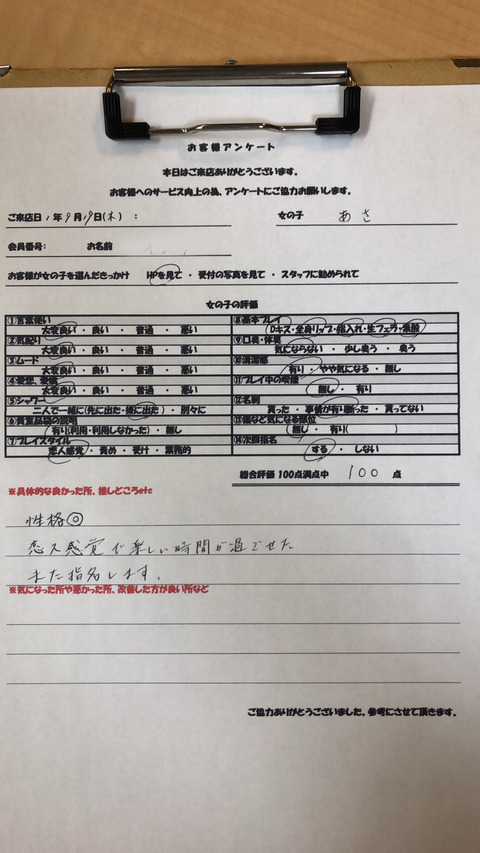 お客様アンケート
本日はご来店ありがとうございます。
お客様へのサービス向上の為、アンケートにご協力お願いします。
ご来店日 1年9月19日(木) :
女の子 あさ
会員番号: お名前
お客様が女の子を選んだきっかけ HPを見て ・ 受付の写真を見て ・ スタッフに勧められて
女の子の評価
①言葉使い
大変良い ・ 良い ・ 普通 ・ 悪い
②気配り
大変良い ・ 良い ・ 普通 ・ 悪い
③ムード
大変良い ・ 良い ・ 普通 ・ 悪い
④愛想、愛嬌
大変良い ・ 良い ・ 普通 ・ 悪い
⑤シャワー
二人で一緒に(先に出た・後に出た) ・ 別々に
⑥貴重品袋の説明
有り(利用・利用しなかった) ・ 無し
⑦プレイスタイル
恋人感覚 ・ 責め ・ 受け ・ 業務的
⑧基本プレイ
Dキス・全身リップ・指入れ・生フェラ・素股
⑨口臭・体臭
気にならない ・ 少し臭う ・ 臭う
⑩清潔感
有り ・ やや気になる ・ 無し
⑪プレイ中の喫煙
無し ・ 有り
⑫名刺
貰った ・ 事情が有り断った ・ 貰ってない
⑬傷など気になる部位
無し ・ 有り( )
⑭次回指名
する ・ しない
総合評価 100点満点中 100 点
※具体的な良かった所、推しどころetc
性格◎
恋人感覚で楽しい時間が過ごせた
また指名します。
※気になった所や悪かった所、改善した方が良い所など
ご協力ありがとうございました。参考にさせて頂きます。